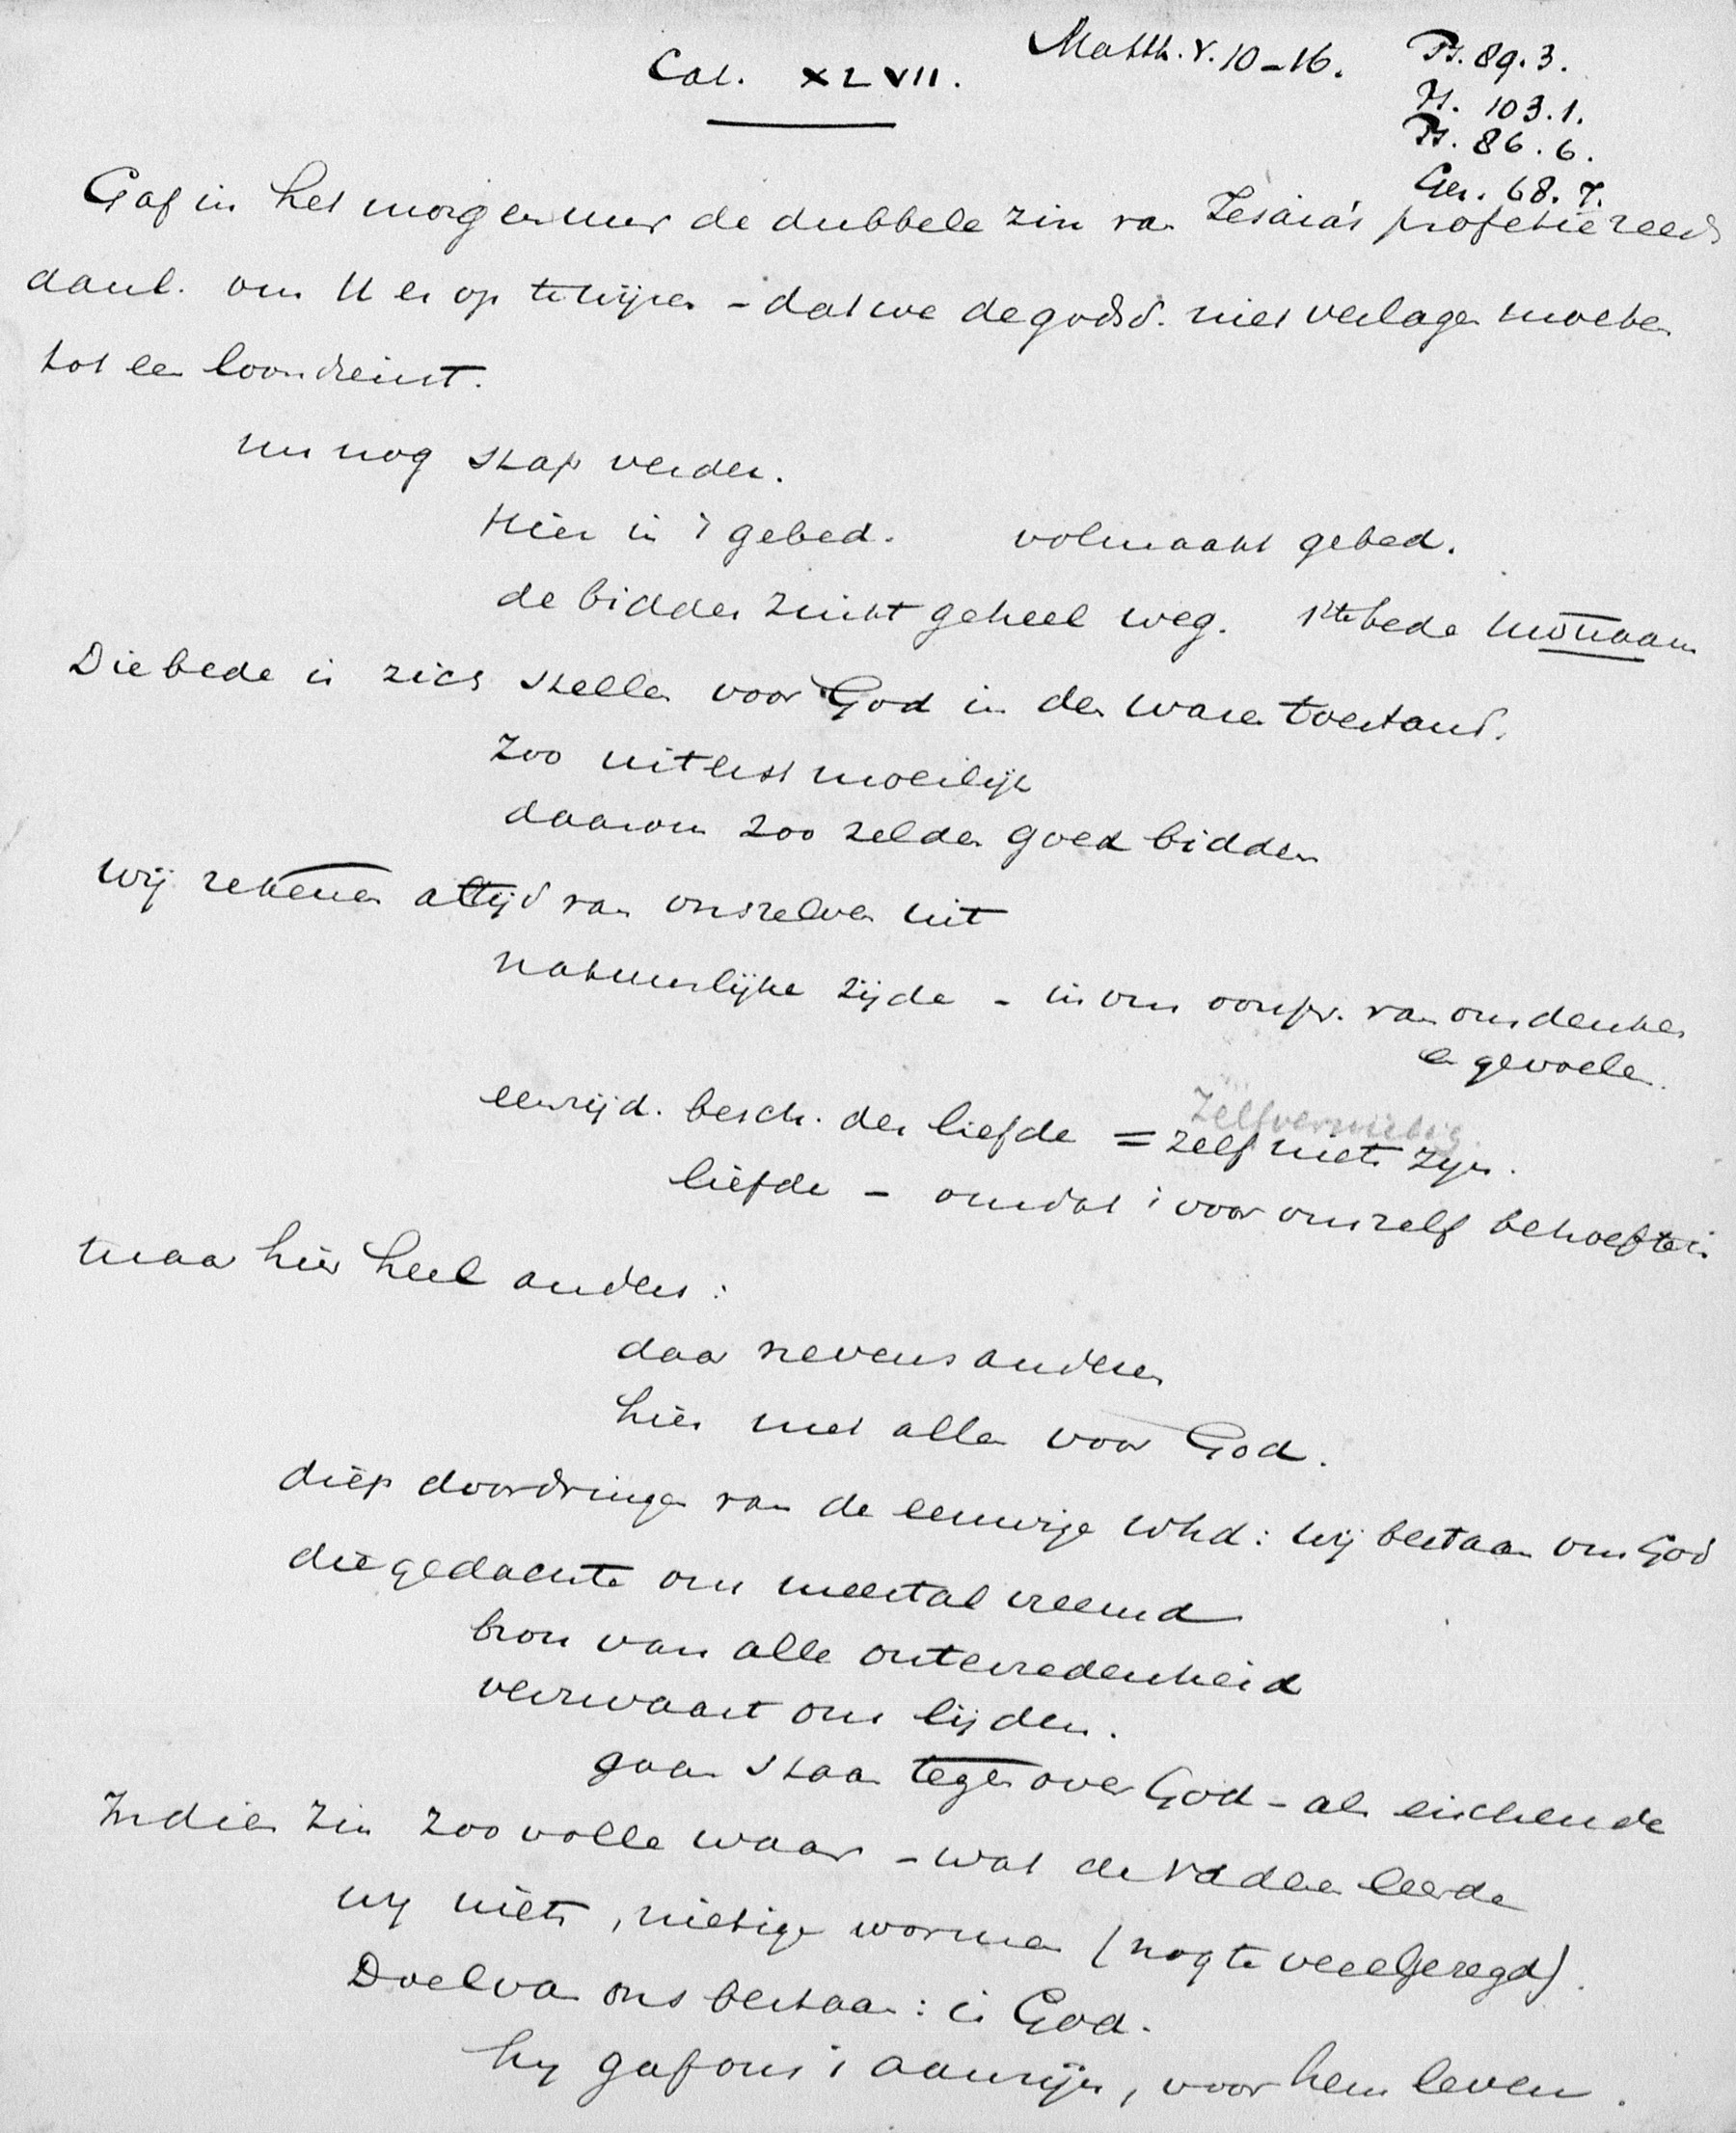 Cat. XLVII.
Matth. V. 10-16.
Ps. 89.3.
Ps. 103.1.
Ps. 86.6.
Gez. 68.7.
Gaf in het morgenuur de dubbele zin van Jesaia's profetie reeds
aanl. om U er op te wijzen - dat we de godsd. niet verlagen moeten
tot een loondienst.
nu nog stap verder.
Hier in 't gebed. volmaakt gebed.
de bidder zinkt geheel weg. 1ste bede Uw naam
Die bede is zich stellen voor God in den waren toestand.
Zoo uiterst moeilijk
daarom zoo zelden goed bidden
Wij rekenen altijd van onszelven uit
natuurlijke zijde - is ons oorspr. van ons denken
en gevoelen.
eenzijd. besch. der liefde = zelf niets zijn.
Zelfvernietig.
liefde - omdat 't voor onszelf behoefte is
maar hier heel anders:
daar nevens anderen
hier met allen voor God.
diep doordringen van de eeuwige whd: wij bestaan om God
die gedachte ons meestal vreemd
bron van alle ontevredenheid
verzwaart ons lijden.
gaan staan tegenover God - als eischende
In dien zin zoo volle waar - wat de vaderen leerden
wij niets, nietige wormen (nog te veel gezegd).
Doel van ons bestaan: is God.
hij gaf ons 't aanzijn, voor hem leven.